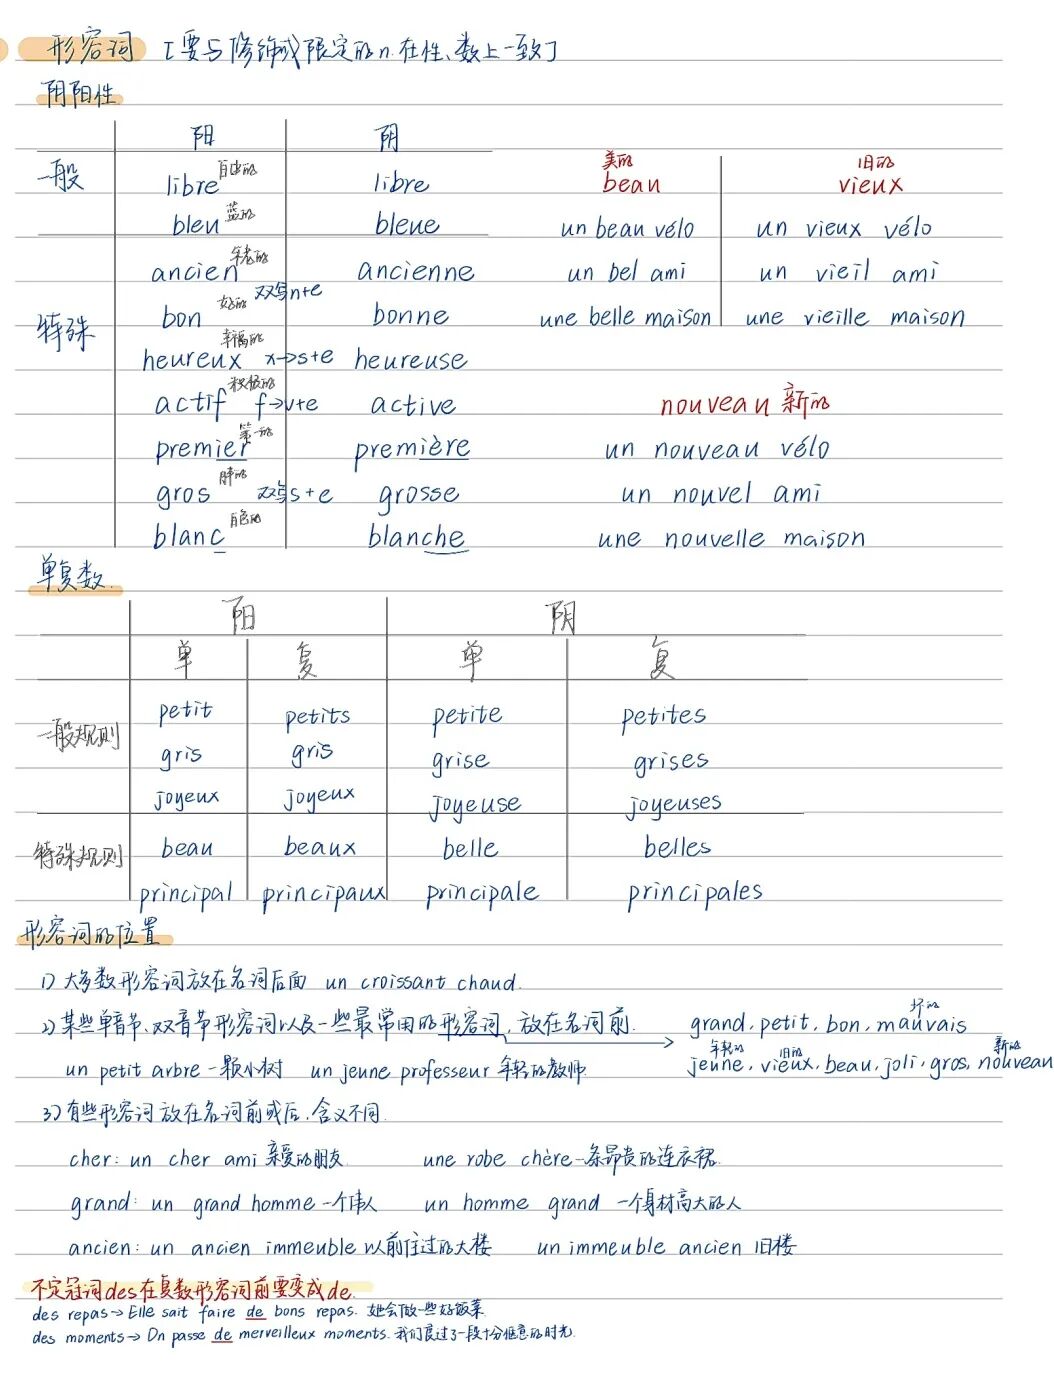 形容词 [要与修饰或限定的n.在性、数上一致]
阴阳性
阳 阴
一般 libre 自由的 libre
bleu 蓝的 bleue
特殊 ancien 年老的 ancienne
bon 好的 双写n+e bonne
heureux 幸福的 x→s+e heureuse
actif 积极的 f→v+e active
premier 第一的 première
gros 胖的 双写s+e grosse
blanc 白色的 blanche
美的 旧的
beau vieux
un beau vélo un vieux vélo
un bel ami un vieil ami
une belle maison une vieille maison
nouveau 新的
un nouveau vélo
un nouvel ami
une nouvelle maison
单复数.
阳 阴
单 复 单 复
一般规则 petit petits petite petites
gris gris grise grises
joyeux joyeux joyeuse joyeuses
特殊规则 beau beaux belle belles
principal principaux principale principales
形容词的位置
1) 大多数形容词放在名词后面 un croissant chaud.
2) 某些单音节、双音节形容词以及一些最常用的形容词,放在名词前. → grand, petit, bon, mauvais 坏的
un petit arbre 一颗小树 un jeune professeur 年轻的教师 jeune 年轻的, vieux 旧的, beau, joli, gros, nouveau 新的
3) 有些形容词放在名词前或后,含义不同.
cher: un cher ami 亲爱的朋友 une robe chère 一条昂贵的连衣裙.
grand: un grand homme 一个伟人 un homme grand 一个身材高大的人
ancien: un ancien immeuble 以前住过的大楼 un immeuble ancien 旧楼
不定冠词des在复数形容词前要变成de.
des repas → Elle sait faire de bons repas. 她会做一些好饭菜
des moments → On passe de merveilleux moments. 我们度过了一段十分惬意的时光.